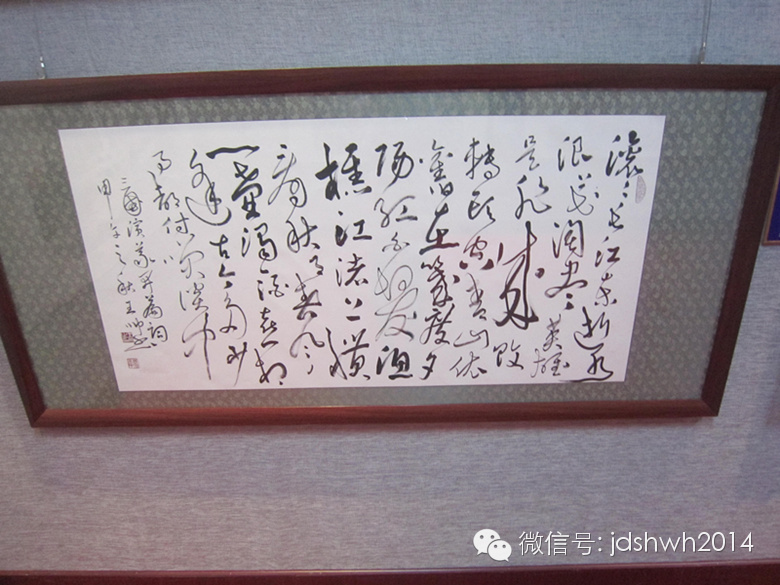 滚滚长江东逝水
浪花淘尽英雄
是非成败
转头空青山依
旧在几度夕
阳红白发渔
樵江渚上惯
看秋月春风
一壶浊酒喜相
逢古今多少
事都付笑谈中
三国演义开篇词
甲午之秋王
微信号: jdshwh2014